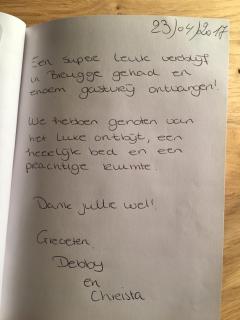 23/04/2017
Een super leuk verblijf
in Brugge gehad en
enorm gastvrij ontvangen!
We hebben genoten van
het luxe ontbijt, een
heerlijk bed en een
prachtige ruimte.
Dank jullie wel!
Groeten,
Debby
en
Christa